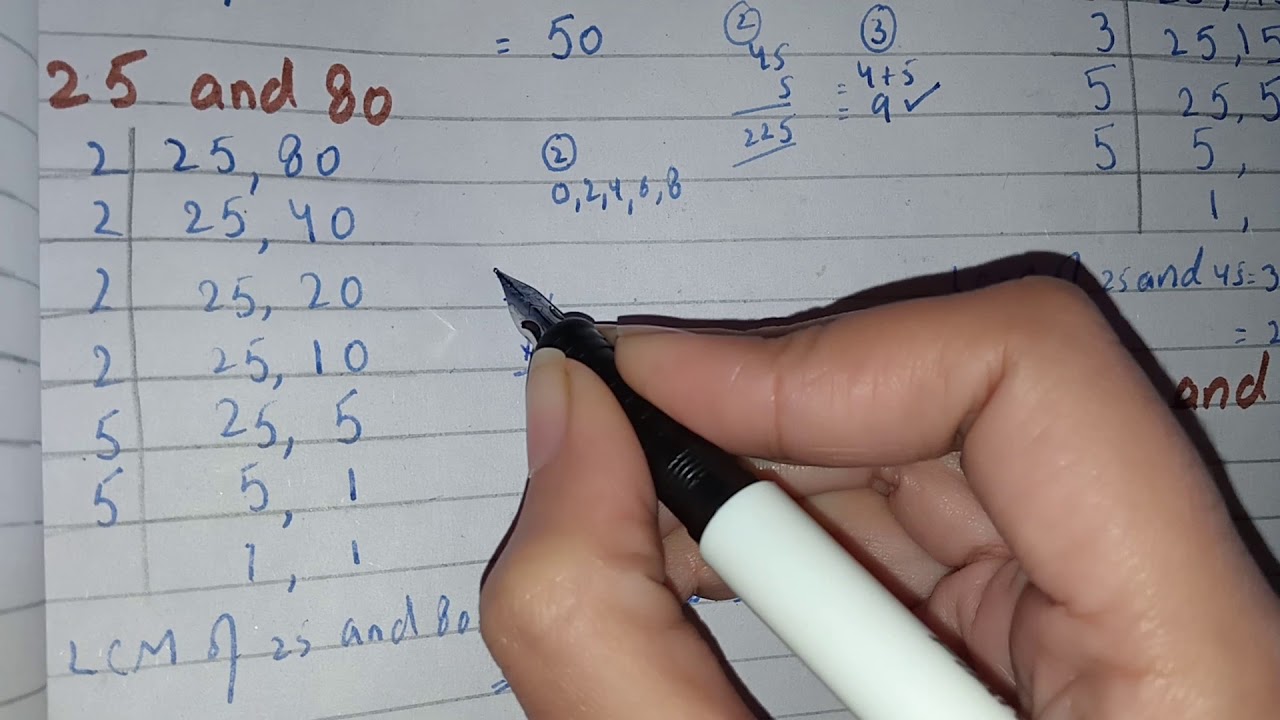 = 50
25 and 80
2 25, 80
2 25, 40
2 25, 20
2 25, 10
5 25, 5
5 5, 1
1, 1
LCM of 25 and 80
=
②
45
5
225
③
4+5
= 9 ✓
②
0,2,4,6,8
3 25,15
5 25,5
5 5,
1,
25 and 45=3
= 2
and